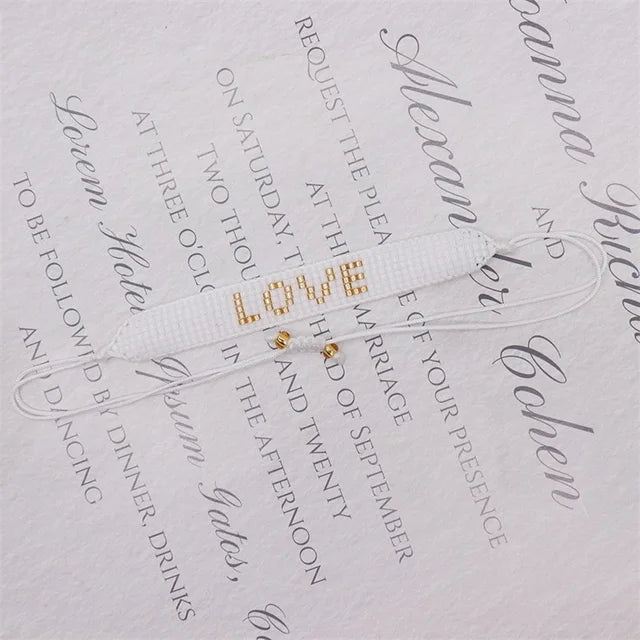 Joanna
Richa
AND
Alexander
Cohen
REQUEST THE PLEA OF YOUR PRESENCE
AT THE MARRIAGE
ON SATURDAY, ND OF SEPTEMBER
TWO THOU AND TWENTY
AT THREE O'CLO THE AFTERNOON
Lorem Hote Ipsum Gatos,
TO BE FOLLOWED BY DINNER, DRINKS
AND DANCING
LOVE